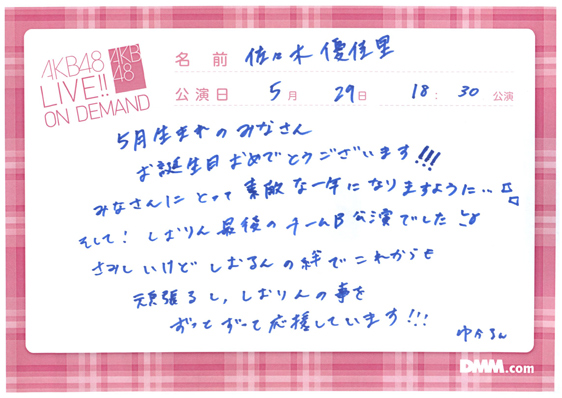 AKB48
LIVE!!
ON DEMAND
AKB
48
名前 佐々木優佳里
公演日 5月 29日 18:30 公演
5月生まれのみなさん
お誕生日おめでとうございます!!!
みなさんにとって素敵な一年になりますように..
そして! しおりん最後のチームB公演でした
さみしいけどしおるんの絆でこれからも
頑張るし、しおりんの事を
ずっとずーっと応援しています!!!
ゆかるん
DMM.com